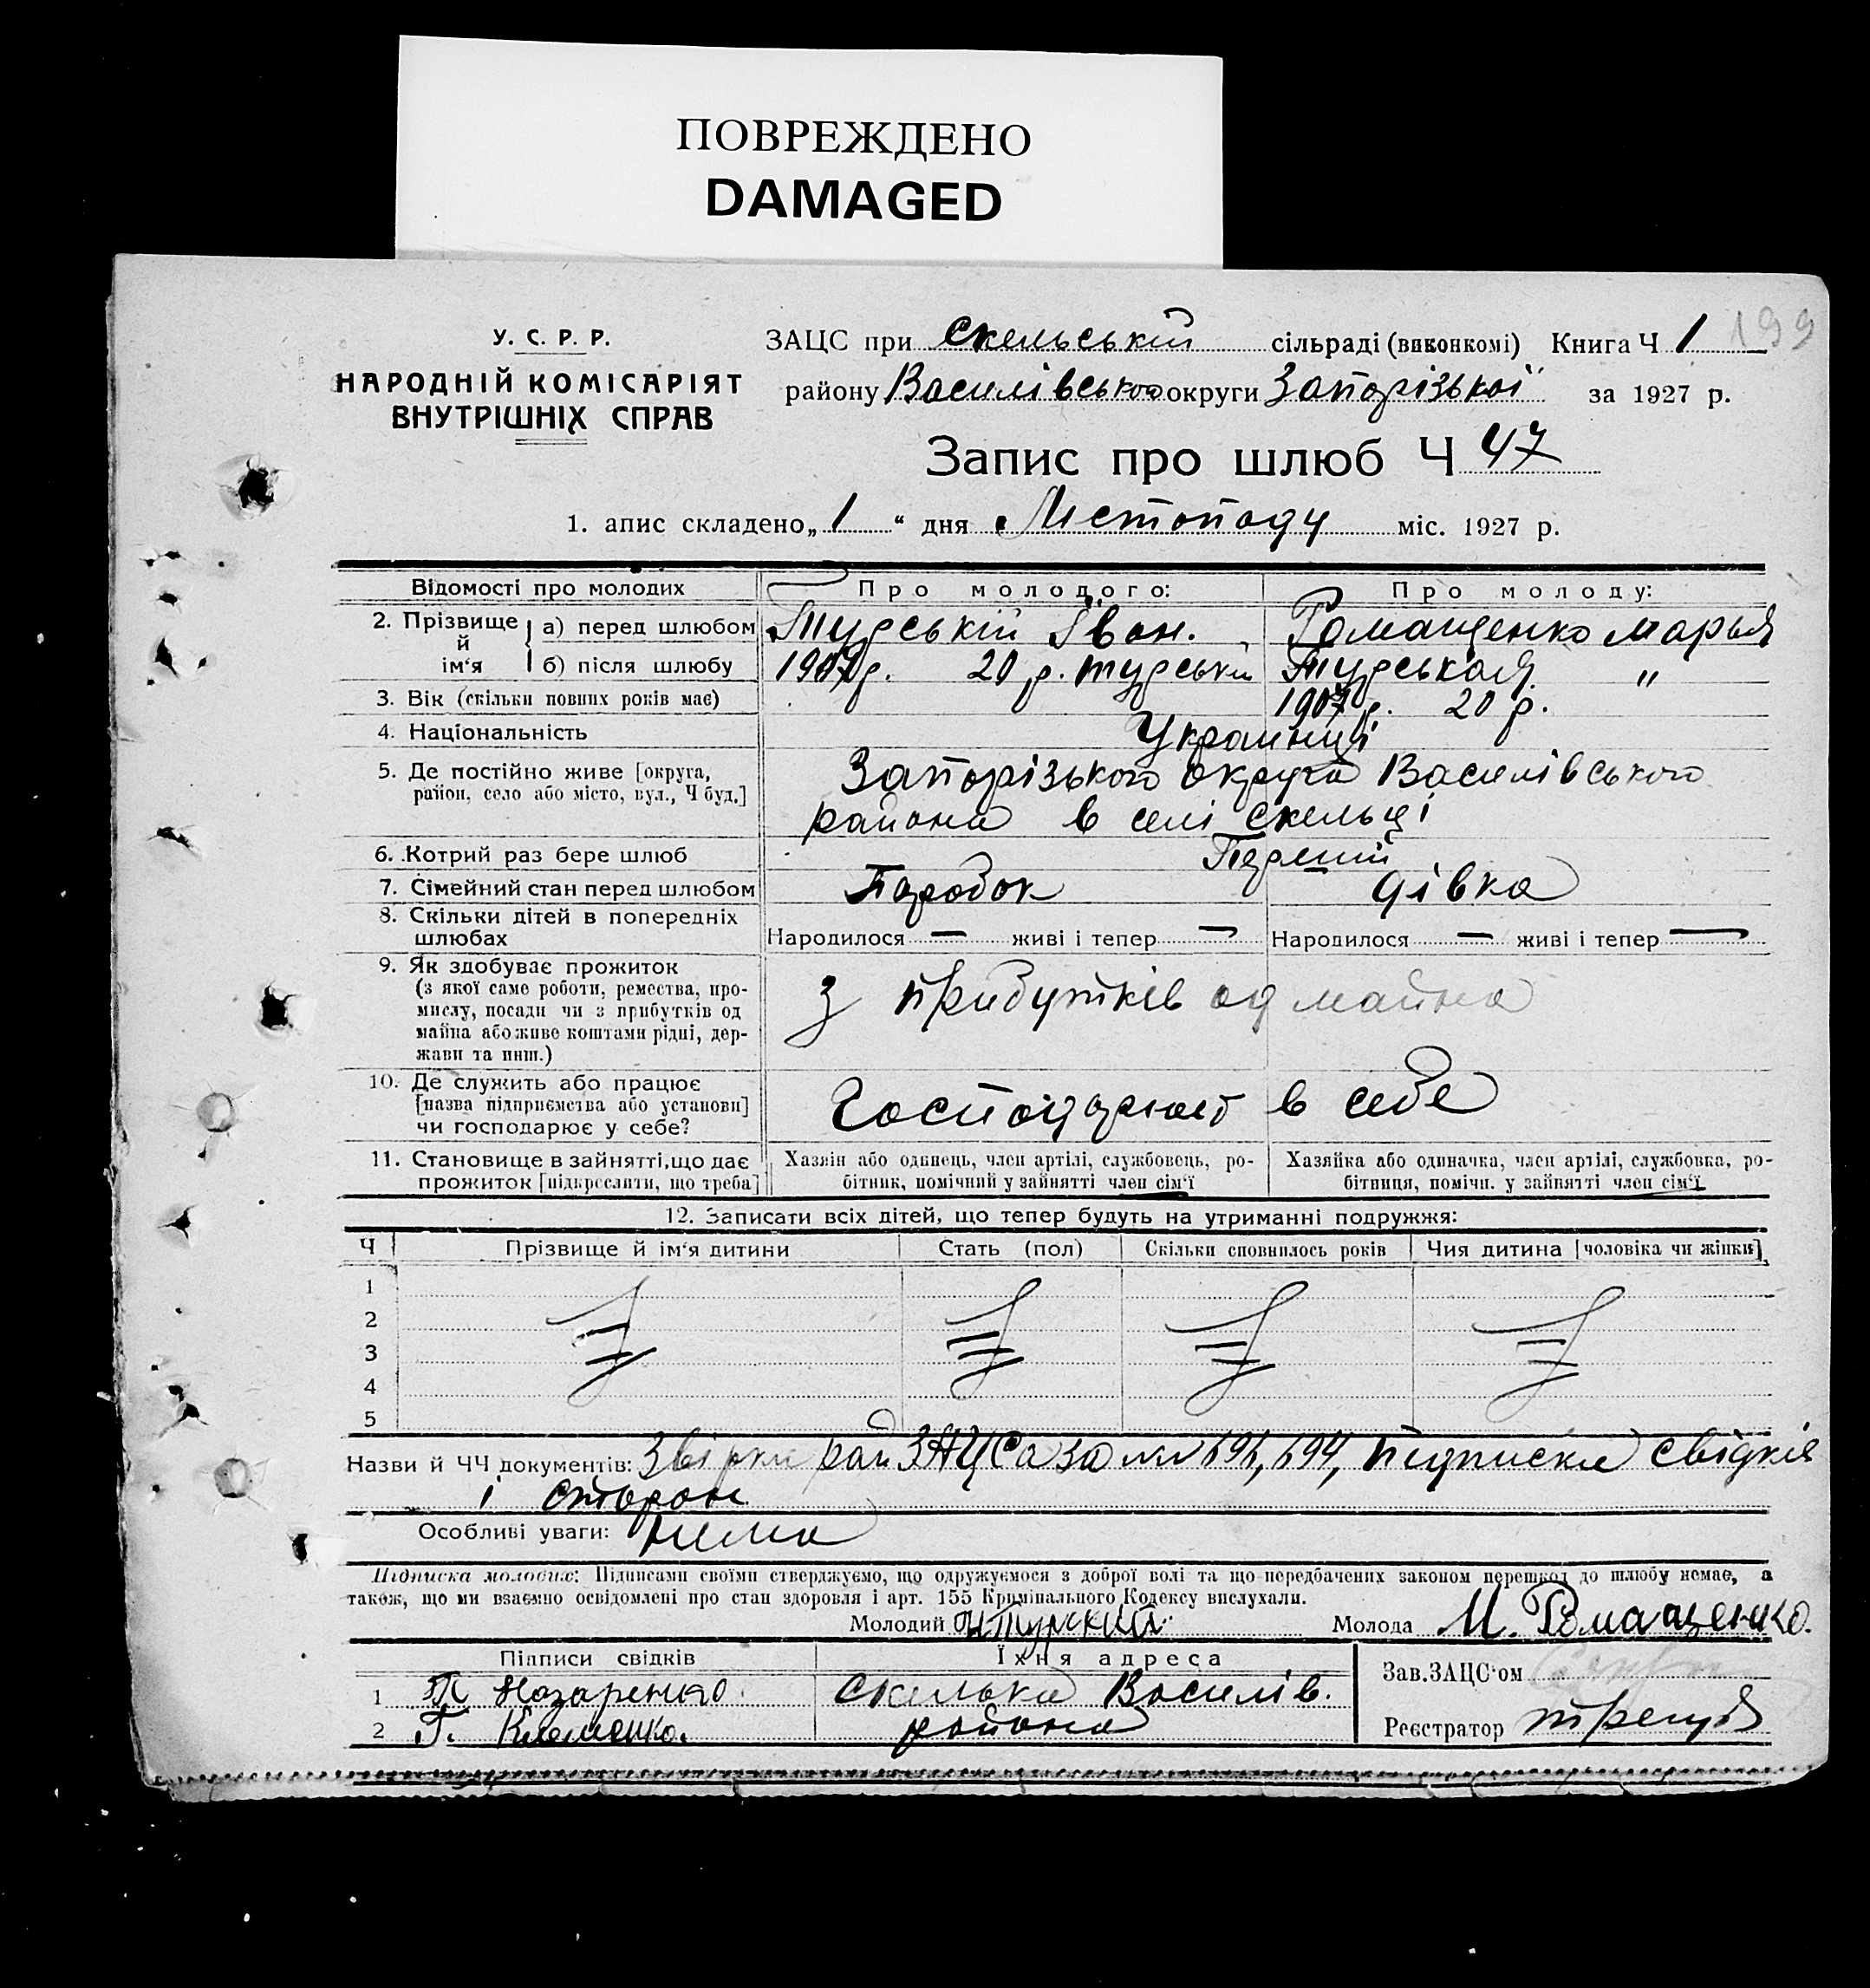 ПОВРЕЖДЕНО
DAMAGED
199
У. С. Р. Р.
НАРОДНІЙ КОМІСАРІЯТ
ВНУТРІШНІХ СПРАВ
ЗАЦС при Скельській сільраді (виконкомі) Книга Ч 1
району Василівського округи Запорізької за 1927 р.
Запис про шлюб Ч 47
1. апис складено „ 1 “ дня Листопаду міс. 1927 р.
Відомості про молодих
Про молодого:
Про молоду:
2. Прізвище й ім‘я
а) перед шлюбом
Турській Іван.
Ромащенко Марья
б) після шлюбу
1907 р. 20 р. Турській
Турськая "
3. Вік (скільки повних років має)
1907 р. 20 р.
4. Національність
Украинці
5. Де постійно живе [округа,
район, село або місто, вул., Ч буд.]
Запорізького округа Василівського
района в селі Скельці
6. Котрий раз бере шлюб
Перший
7. Сімейний стан перед шлюбом
Паробок
дівка
8. Скільки дітей в попередніх
шлюбах
Народилося — живі і тепер —
Народилося — живі і тепер —
9. Як здобуває прожиток
(з якої саме роботи, ремества, про-
мислу, посади чи з прибутків од
майна або живе коштами рідні, дер-
жави та инш.)
з прибутків од майна
10. Де служить або працює
[назва підприємства або установи]
чи господарює у себе?
Господарюют в себе
11. Становище в зайнятті, що дає
прожиток [підкреслити, що треба]
Хазяін або одинець, член артілі, службовець, ро-
бітник, помічний у зайнятті член сім‘ї
Хазяйка або одиначка, член артілі, службовка, ро-
бітниця, помічн. у зайнятті член сім‘ї
12. Записати всіх дітей, що тепер будуть на утриманні подружжя:
Ч
Прізвище й ім‘я дитини
Стать (пол)
Скільки сповнилось років
Чия дитина [чоловіка чи жінки]
1
2
3
4
5
Назви й ЧЧ документів: Звірки рай ЗАЦСа за підписки свідків
і сторон
Особливі уваги: Нема
Підписка молодих: Підписами своїми стверджуємо, що одружуємося з доброї волі та що передбачених законом перешкод до шлюбу немає, а
також, що ми взаємно освідомлені про стан здоровля і арт. 155 Кримінального Кодексу вислухали.
Молодий Турский
Молода М. Ромащенко.
Підписи свідків
Їхня адреса
1 Назаренко.
Скелька Василів.
2 Г. Клеменко.
района
Зав.ЗАЦС‘ом
Реєстратор